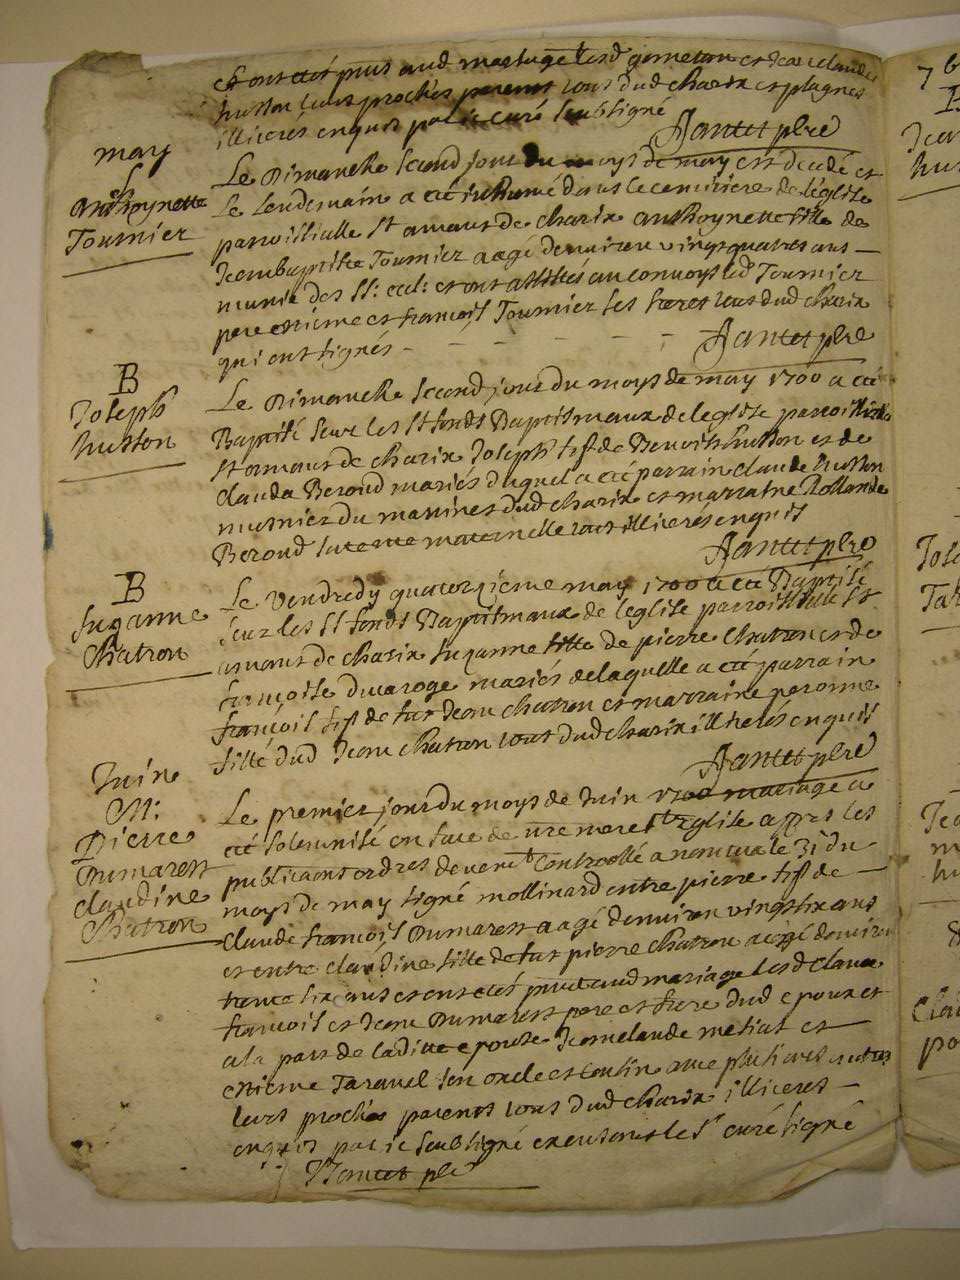 et ont etés pnts aud mariage lesd et Jean claude
husson leurs proches parents tous dud charix et plagnes
illiterés enquis par ie curé soubsigné
Jantet ptre
may
†
Anthoynette
Tournier
Le Dimanche second jour du moys de may est decedé et
Le Lendemain a eté inhumé dans le cemitiere de l'eglise
parroissialle st amant de charix anthoynette fille de
Jean baptiste Tournier aagé denviron vingt quatres ans
munie des ss: ecel: et ont assistés au convoys led Tournier
pere estienne et francois Tournier ses freres tous dud charix
qui ont signés
Jantet ptre
B
Joseph
husson
Le Dimanche second jour du moys de may 1700 a eté
Baptisé sur les st fonds Baptismaux de leglise parroissialle
st amant de charix Joseph fis de Benoist husson et de
clauda Beroud mariés duquel a eté parrain claude husson
musnier du marinet dud charix et marraine Rollande
Beroud sa tante maternelle tous illiterés enquis
Jantet ptre
B
Suzanne
Chatron
Le vendredy quatorzieme may 1700 a eté Baptisé
sur les st fonds Baptismaux de leglise parroissialle st
amant de charix suzanne fille de pierre chatron et de
francoise Ducaroge mariés de laquelle a eté parrain
francois fis de fut Jean chatron et marraine peronne
fille dud Jean chatron tous dud charix illiterés enquis
Jantet ptre
Juin
M:
Pierre
Dumarest
claudine
Chatron
Le premier jour du moys de Juin 1700 mariage a
eté solemnisé en face de nre mere ste Eglise appres les
publicaons ordres de venerable controollé a nantua le 31 du
moys de may signé mollinard entre pierre fis de
claude francois Dumarest aagé denviron vingt six ans
et entre claudine fille de fut pierre chatron aagé denviron
trente six ans et ont etés pnts aud mariage lesd claude
francois et Jean Dumarest pere et frere dud epoux et
a la part de laditte epouse Jean claude metiat et
estienne Taravel son oncle et cousin avec plusieurs autres
leurs proches parents tous dud charix illiterés
enquis par ie soubsigné curé signé
Jantet ptre